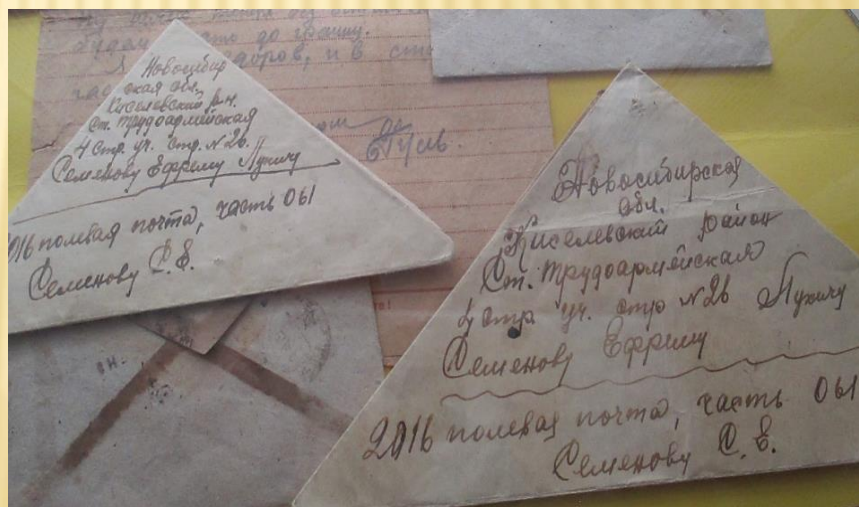 до границ.
здоров, и в
Новосибир
ская обл.
Киселевский р-н.
Ст. Трудоармейская
4 стр. уч. стр. №26.
Семенову Ефрему Лукичу
2016 полевая почта, часть 061
Семенову С. Е.
Новосибирская
обл.
Киселевский район
Ст. Трудоармейская
4 стр уч. стр №26 Лукичу
Семенову Ефрему
2016 полевая почта, часть 061
Семенову С. Е.